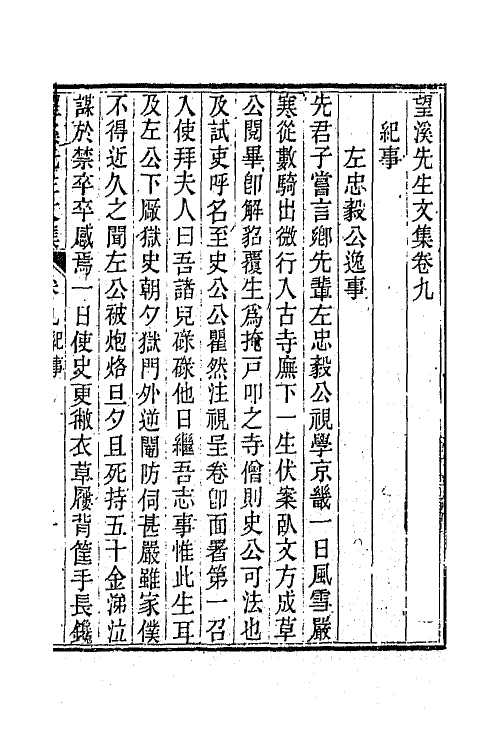 望溪先生文集卷九
紀事
左忠毅公逸事
先君子嘗言鄉先輩左忠毅公視學京畿一日風雪嚴
寒從數騎出微行入古寺廡下一生伏案臥文方成草
公閱畢卽解貂覆生爲掩戸叩之寺僧則史公可法也
及試吏呼名至史公公瞿然注視呈卷卽面署第一召
入使拜夫人曰吾諸兒碌碌他日繼吾志事惟此生耳
及左公下厰獄史朝夕獄門外逆閹防伺甚嚴雖家僕
不得近久之聞左公被炮烙旦夕且死持五十金涕泣
謀於禁卒卒感焉一日使史更敝衣草屨背筐手長鑱
望溪先生文集 卷九紀事 一